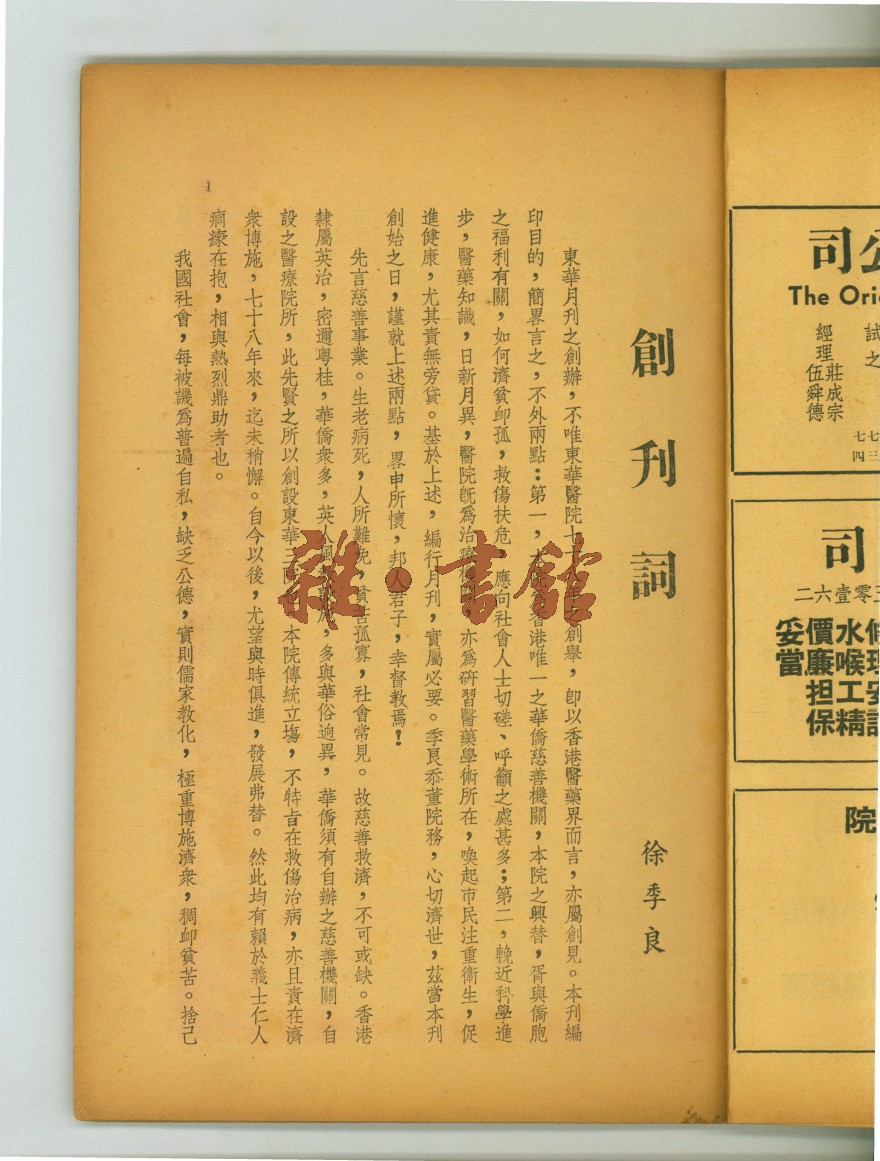 創刊詞
徐季良
東華月刊之創辦，不唯東華醫院七十之創舉，卽以香港醫藥界而言，亦屬創見。本刊編
印目的，簡畧言之，不外兩點：第一，香港唯一之華僑慈善機關，本院之興替，胥與僑胞
之福利有關，如何濟貧卹孤，救傷扶危，應向社會人士切磋、呼籲之處甚多；第二，輓近科學進
步，醫藥知識，日新月異，醫院旣爲治療，亦爲硏習醫藥學術所在，喚起市民注重衞生，促
進健康，尤其責無旁貸。基於上述，編行月刊，實屬必要。季良忝董院務，心切濟世，茲當本刊
創始之日，謹就上述兩點，畧申所懷，邦人君子，幸督教焉！
先言慈善事業。生老病死，人所難免，貧苦孤寡，社會常見。故慈善救濟，不可或缺。香港
隸屬英治，密邇粵桂，華僑衆多，英人風，多與華俗逈異，華僑須有自辦之慈善機關，自
設之醫療院所，此先賢之所以創設東華三院也。本院傳統立塲，不特旨在救傷治病，亦且責在濟
衆博施，七十八年來，迄未稍懈。自今以後，尤望與時俱進，發展弗替。然此均有賴於義士仁人
痌瘝在抱，相與熱烈鼎助者也。
我國社會，每被譏爲普遍自私，缺乏公德，實則儒家教化，極重博施濟衆，稠卹貧苦。捨己
1
雜·書館
公司
The Orie
試之
經理 莊成宗
伍舜德
七七
四三
司
二六壹零
修理安
水喉工精
價廉担保
妥當
院